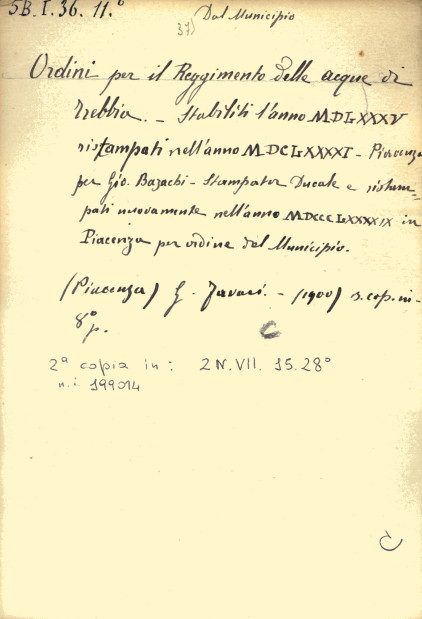 5B.I.36.11.° Dal Municipio
37)
Ordini per il Reggimento delle acque di
Trebbia. - Stabiliti l'anno MDLXXXV
ristampati nell'anno MDCLXXXXI - Piacenza
per Gio. Bazachi - Stampator Ducale e ristam=
pati nuovamente nell'anno MDCCCLXXXXIX in
Piacenza per ordine del Municipio.
(Piacenza) G. Tavani. - (1900) s. cop. in-
8° p.
C
2ª copia in: 2N.VII. 15.28°
n.i. 199014
C